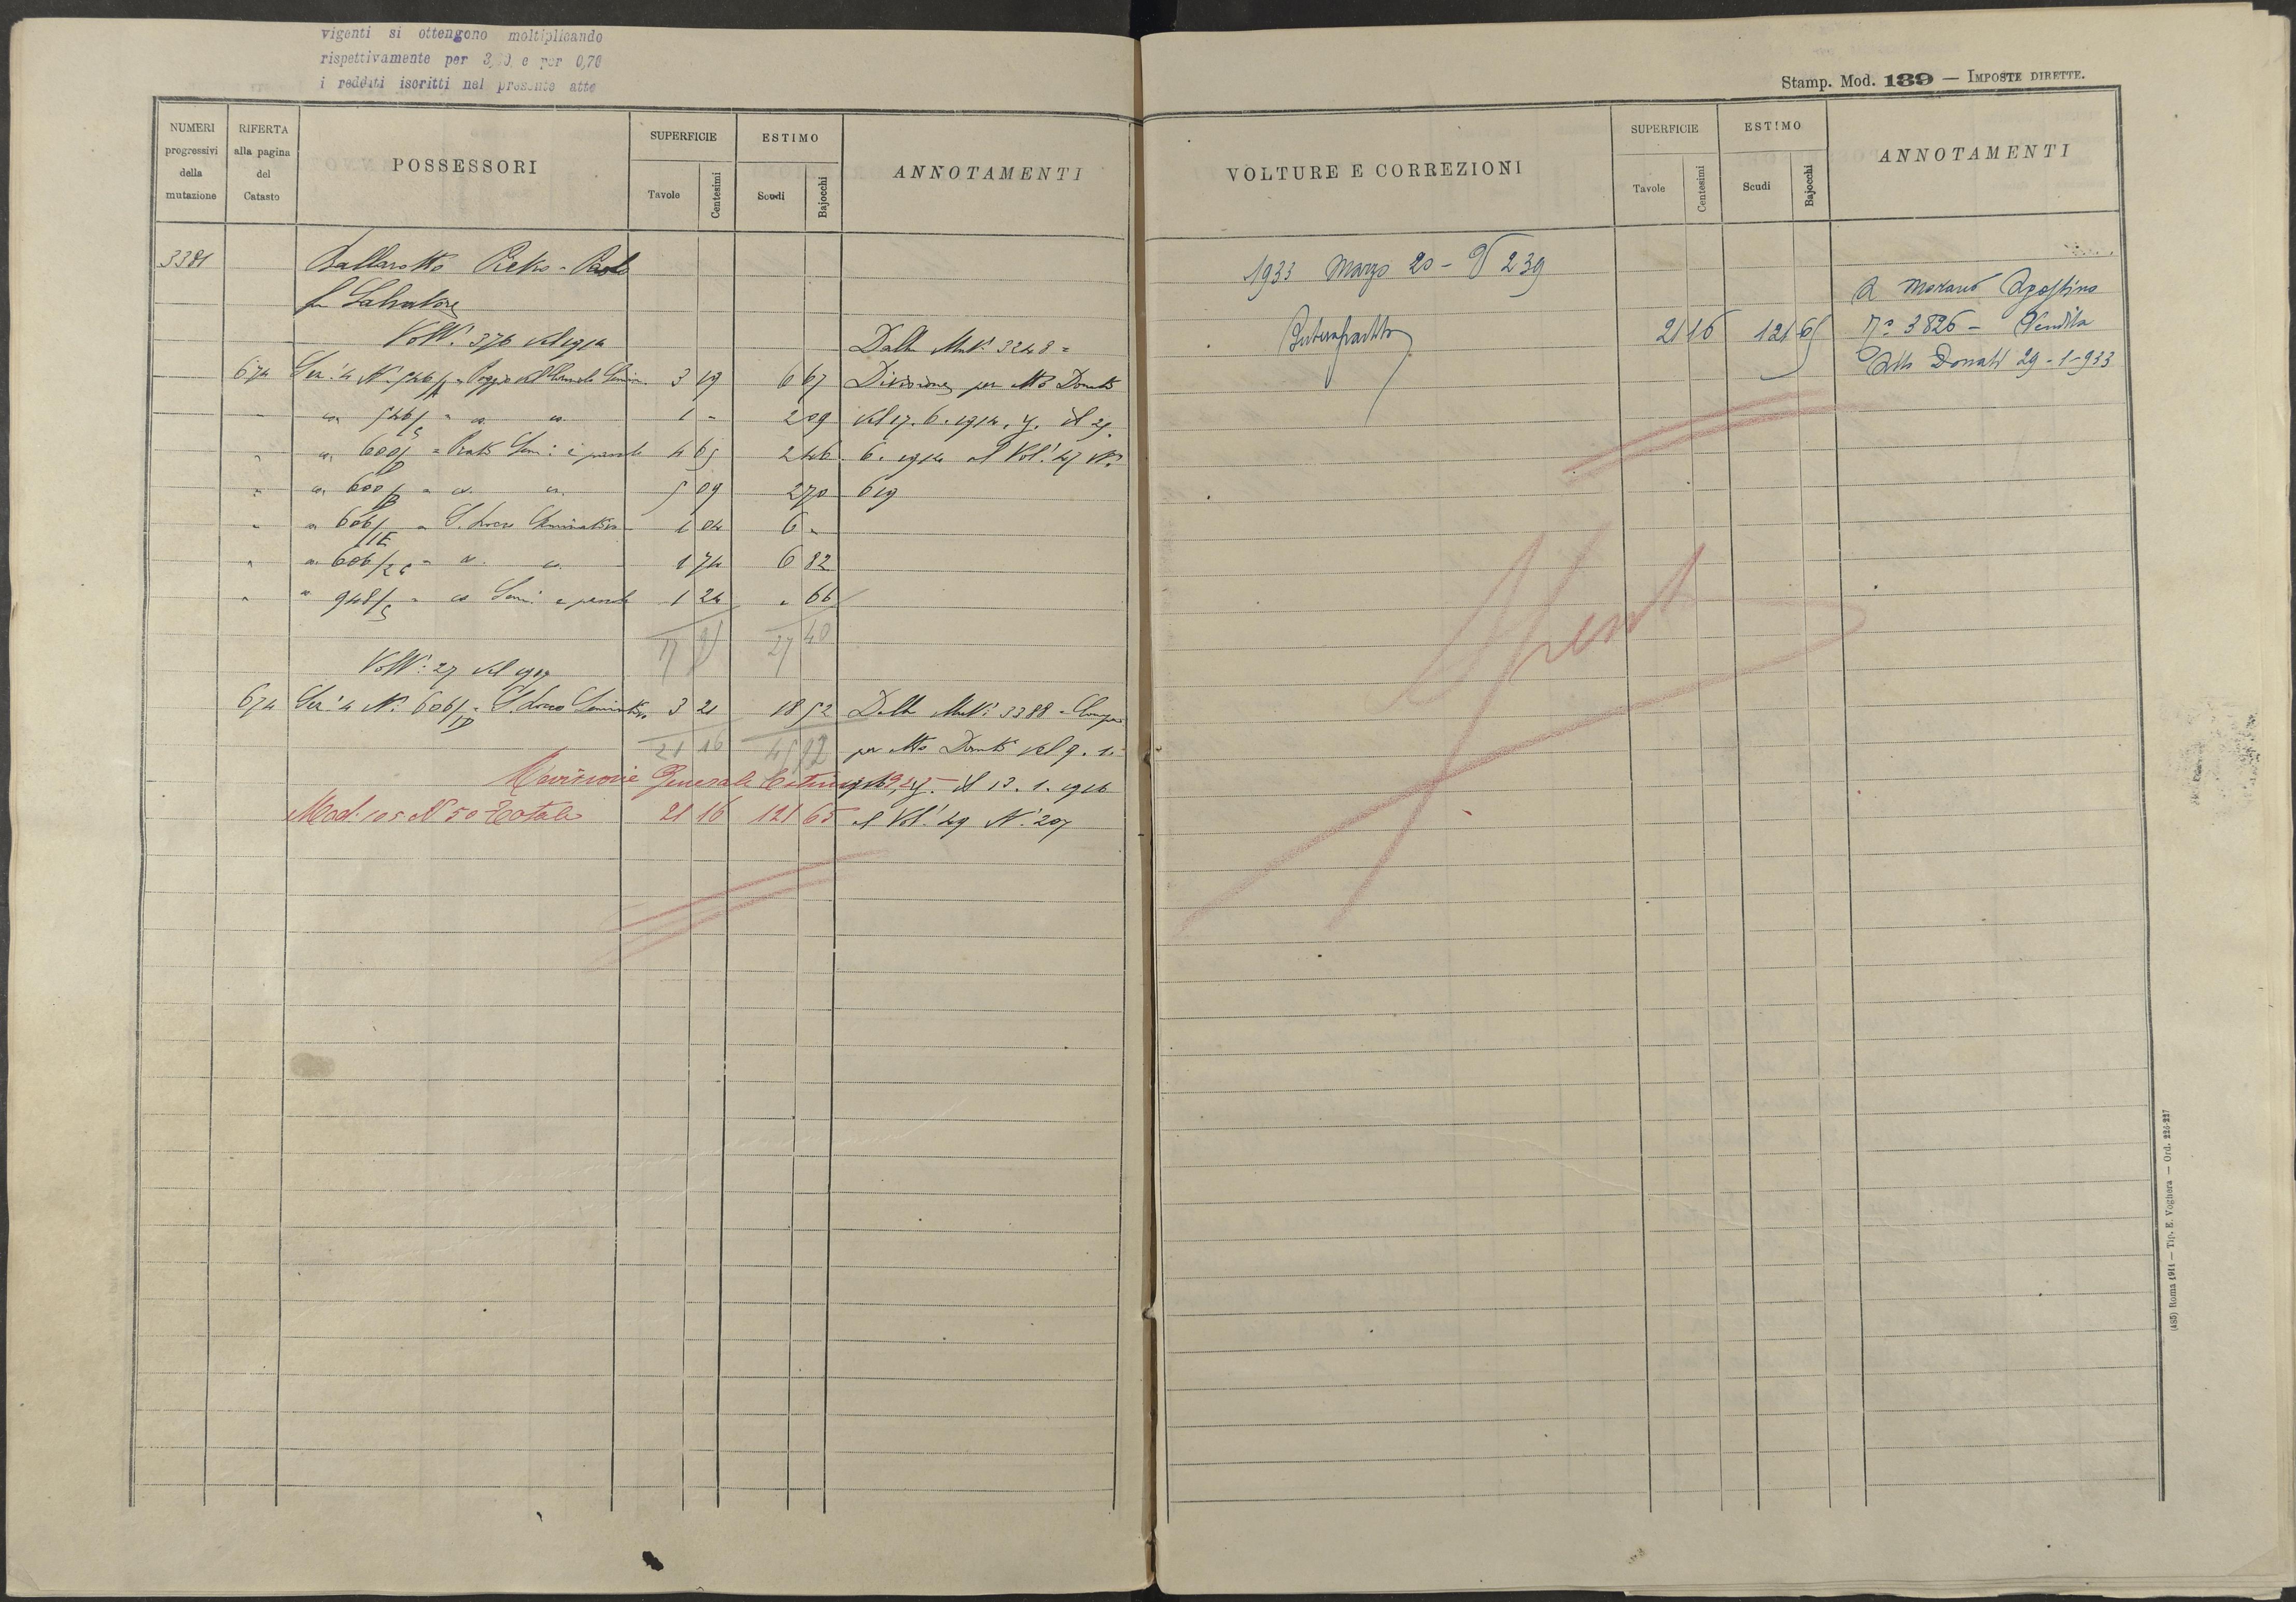 vigenti si ottengono moltiplicando
rispettivamente per 3, e per 0,70
i redditi iscritti nel presente atto
Stamp. Mod. 139 — IMPOSTE DIRETTE.
NUMERI progressivi della mutazione
RIFERTA alla pagina del Catasto
POSSESSORI
SUPERFICIE
Tavole
Centesimi
ESTIMO
Scudi
Bajocchi
ANNOTAMENTI
VOLTURE E CORREZIONI
SUPERFICIE
Tavole
Centesimi
ESTIMO
Scudi
Bajocchi
ANNOTAMENTI
3381 Ballarotto Pietro-Paolo
fu Salvatore
Volt. 376 del 1914 Dalla Mut. 3248 =
674 Sez. 4 N. 546/ 3 19 6 67 Divisione per Atto Donati
546/ 1 - 2 09 del 17.6.1914,
600/ 4 65 2 46 6. 1914 al Vol. 47 N.
600/B 5 09 2 70 619
606/ 1 04 6 -
606/ 1 74 6 82
948/ 1 24 - 66
27 40
Volt. 27 del
674 Sez. 4 N. 606/ID 3 21 18 52 Dalla Mut. 3388 -
21 16 45 92 per Atto Donati del 9. 1.
Revisione Generale Estimi il 13. 1. 1916
Mod. 105 N 50 Totale 21 16 121 65 al Vol. 49 N. 207
1933 Marzo 20 - N 239
A Morano Agostino
Intera partita 21 16 121 65 N° 3826 - Vendita
Atto Donati 29-1-933
Spenta
(485) Roma 1911 — Tip. E. Voghera — Ord. 226-227